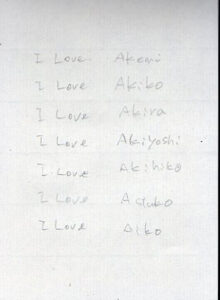 I Love Akemi
I Love Akiko
I Love Akira
I Love Akiyoshi
I Love Akihiko
I Love Asako
I Love Aiko